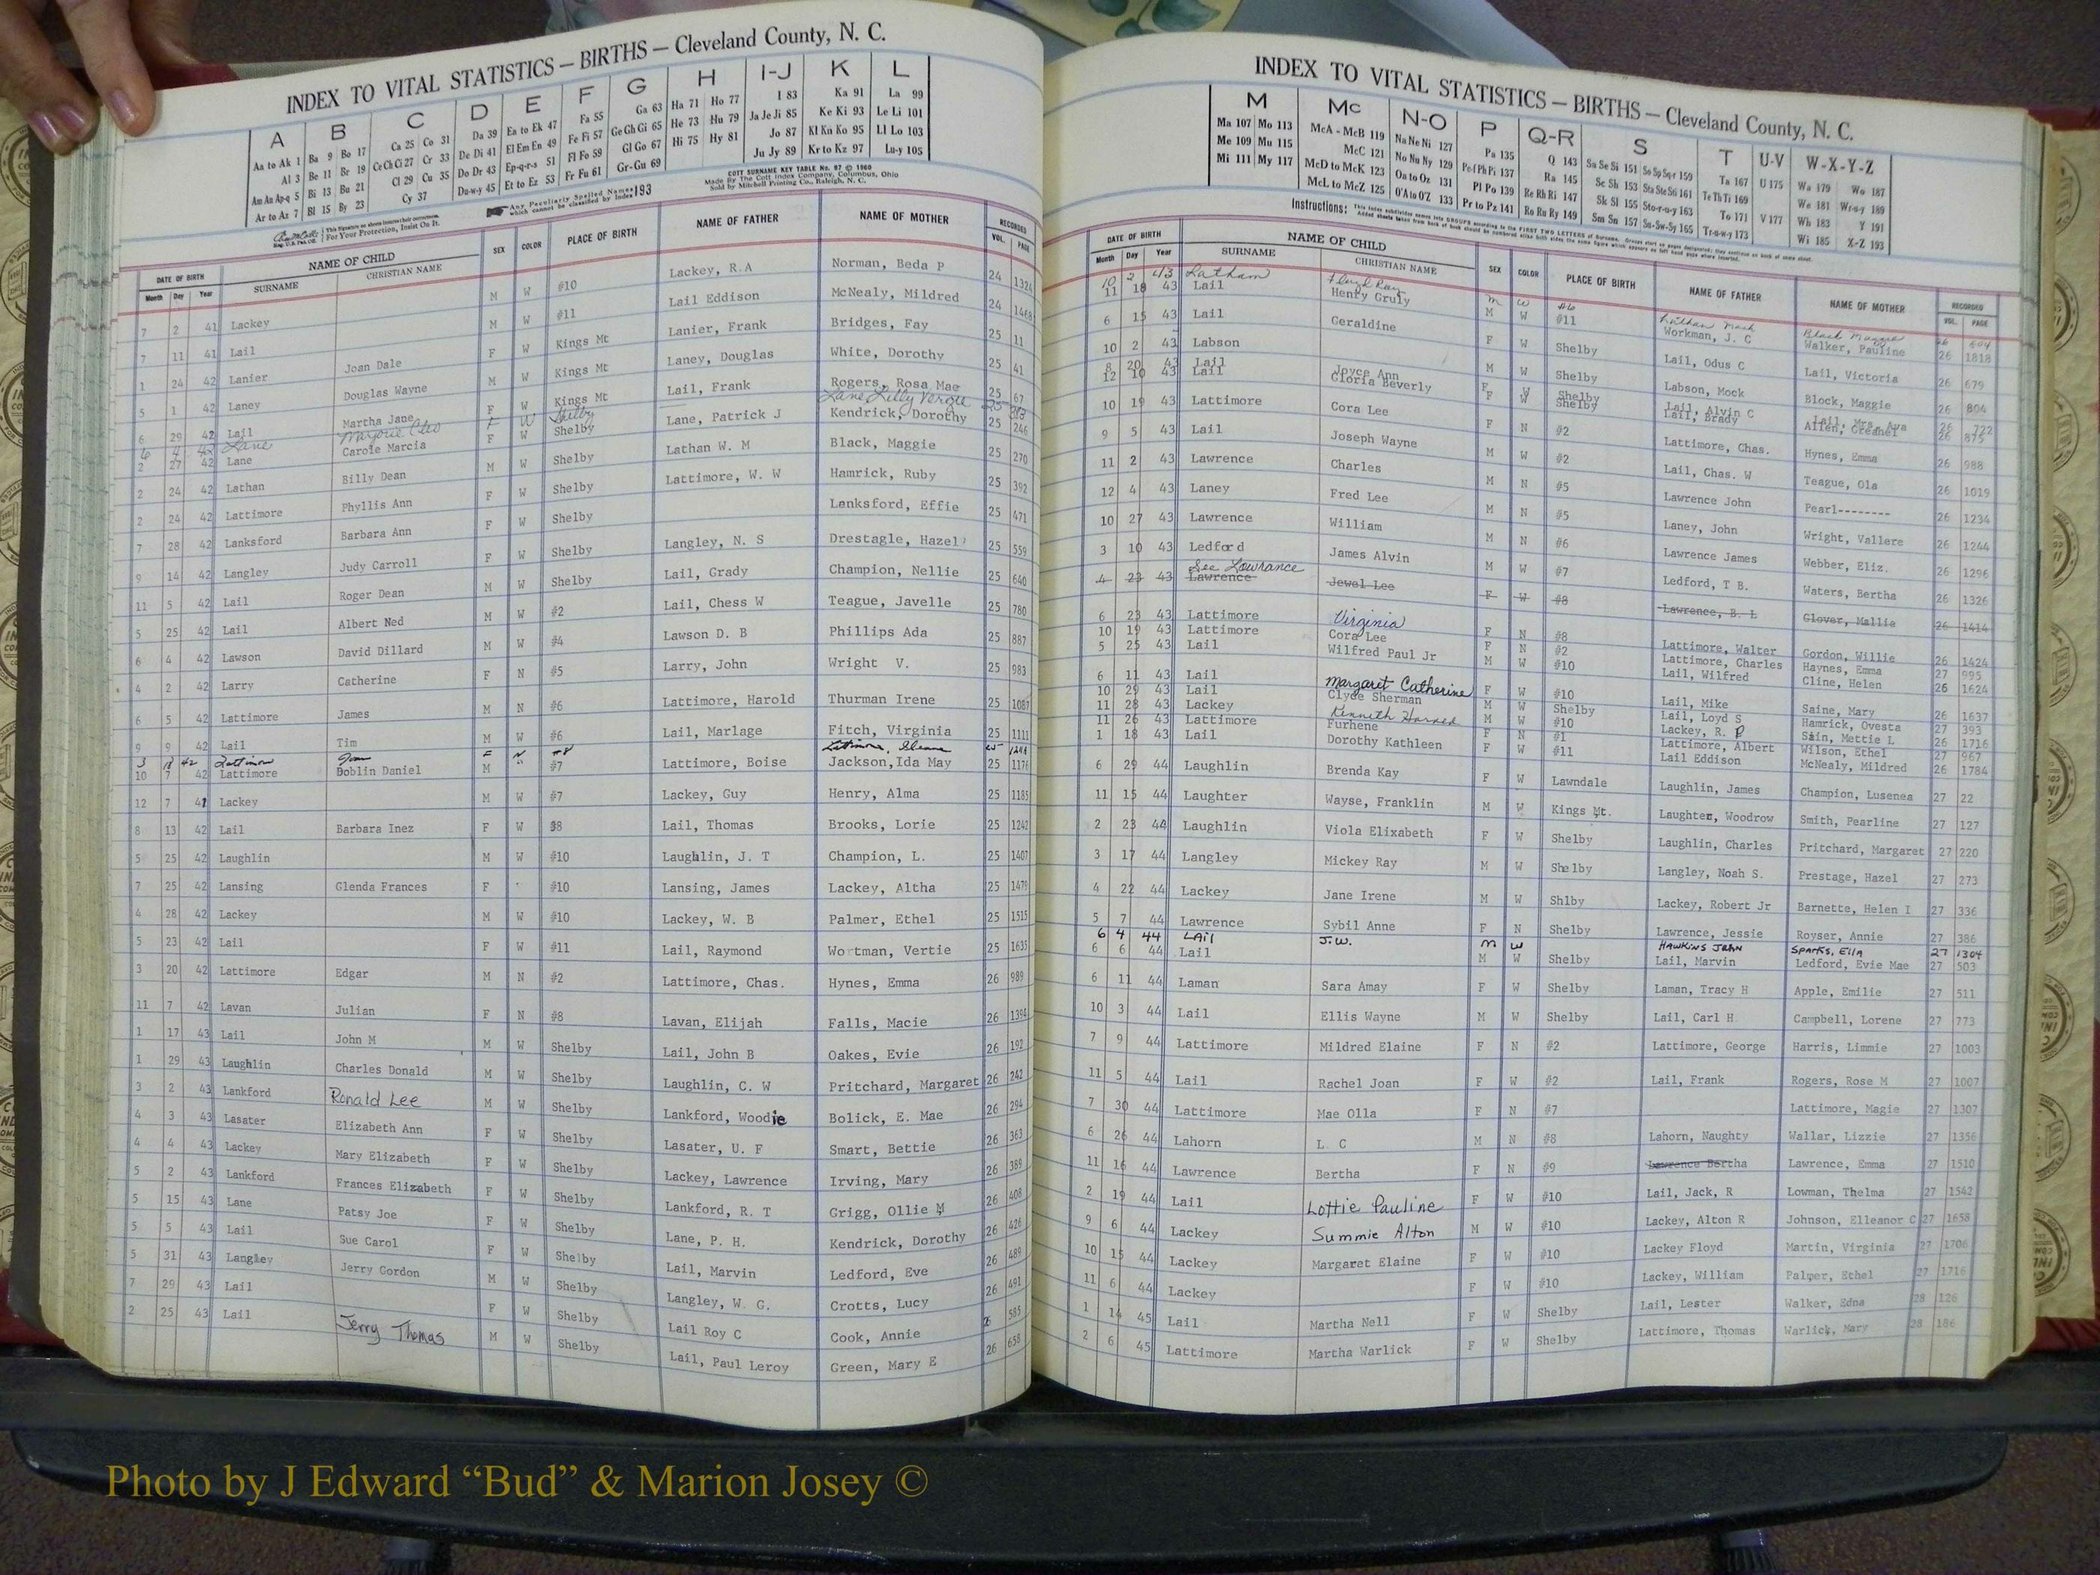 INDEX TO VITAL STATISTICS — BIRTHS — Cleveland County, N. C.
A B C D E F G H I-J K L
Aa to Ak 1 Ba 9 Bo 17 Ca 25 Co 31 Da 39 Ea to Ek 47 Fa 55 Ga 63 Ha 71 Ho 77 I 83 Ka 91 La 99
Al 3 Be 11 Br 19 Ce Ch Ci 27 Cr 33 De Di 41 El Em En 49 Fe Fi 57 Ge Gh Gi 65 He 73 Hu 79 Ja Je Ji 85 Ke Ki 93 Le Li 101
Am An Ap-q 5 Bi 13 Bu 21 Cl 29 Cu 35 Do Dr 43 Ep-q-r-s 51 Fl Fo 59 Gl Go 67 Hi 75 Hy 81 Jo 87 Kl Kn Ko 95 Ll Lo 103
Ar to Az 7 Bl 15 By 23 Cy 37 Du-w-y 45 Et to Ez 53 Fr Fu 61 Gr-Gu 69 Ju Jy 89 Kr to Kz 97 Lu-y 105
COTT SURNAME KEY TABLE No. 97 © 1960
Made By The Cott Index Company, Columbus, Ohio
Sold by Mitchell Printing Co., Raleigh, N. C.
Any Peculiarly Spelled Names which cannot be classified by Index 193
For Your Protection, Insist On It.
DATE OF BIRTH NAME OF CHILD SEX COLOR PLACE OF BIRTH NAME OF FATHER NAME OF MOTHER RECORDED
Month Day Year SURNAME CHRISTIAN NAME VOL. PAGE
7 2 41 Lackey M W #10 Lackey, R.A Norman, Beda P 24 1324
7 11 41 Lail M W #11 Lail Eddison McNealy, Mildred 24 1468
1 24 42 Lanier Joan Dale F W Kings Mt Lanier, Frank Bridges, Fay 25 11
5 1 42 Laney Douglas Wayne M W Kings Mt Laney, Douglas White, Dorothy 25 41
6 29 42 Lail Martha Jane F W Kings Mt Lail, Frank Rogers, Rosa Mae 25 67
6 4 42 Lane Marjorie Cleo F W Shelby Lane Lilly Vergie 25
2 27 42 Lane Carole Marcia F W Shelby Lane, Patrick J Kendrick, Dorothy 25 246
2 24 42 Lathan Billy Dean M W Shelby Lathan W. M Black, Maggie 25 270
2 24 42 Lattimore Phyllis Ann F W Shelby Lattimore, W. W Hamrick, Ruby 25 392
7 28 42 Lanksford Barbara Ann F W Shelby Lanksford, Effie 25 471
9 14 42 Langley Judy Carroll F W Shelby Langley, N. S Drestagle, Hazel 25 559
11 5 42 Lail Roger Dean M W Shelby Lail, Grady Champion, Nellie 25 640
5 25 42 Lail Albert Ned M W #2 Lail, Chess W Teague, Javelle 25 780
6 4 42 Lawson David Dillard M W #4 Lawson D. B Phillips Ada 25 887
4 2 42 Larry Catherine F N #5 Larry, John Wright V. 25 983
6 5 42 Lattimore James M N #6 Lattimore, Harold Thurman Irene 25 1087
9 9 42 Lail Tim M W #6 Lail, Marlage Fitch, Virginia 25 1111
3 42 Lattimore F N #8 Lattimore,
10 7 42 Lattimore Doblin Daniel M #7 Lattimore, Boise Jackson, Ida May 25 1176
12 7 41 Lackey M W #7 Lackey, Guy Henry, Alma 25 1185
8 13 42 Lail Barbara Inez F W #8 Lail, Thomas Brooks, Lorie 25 1242
5 25 42 Laughlin M W #10 Laughlin, J. T Champion, L. 25 1407
7 25 42 Lansing Glenda Frances F #10 Lansing, James Lackey, Altha 25 1479
4 28 42 Lackey M W #10 Lackey, W. B Palmer, Ethel 25 1515
5 23 42 Lail F W #11 Lail, Raymond Wortman, Vertie 25 1635
3 20 42 Lattimore Edgar M N #2 Lattimore, Chas. Hynes, Emma 26 989
11 7 42 Lavan Julian F N #8 Lavan, Elijah Falls, Macie 26 1394
1 17 43 Lail John M M W Shelby Lail, John B Oakes, Evie 26 192
1 29 43 Laughlin Charles Donald M W Shelby Laughlin, C. W Pritchard, Margaret 26 242
3 2 43 Lankford Ronald Lee M W Shelby Lankford, Woodie Bolick, E. Mae 26 294
4 3 43 Lasater Elizabeth Ann F W Shelby Lasater, U. F Smart, Bettie 26 363
4 4 43 Lackey Mary Elizabeth F W Shelby Lackey, Lawrence Irving, Mary 26 389
5 2 43 Lankford Frances Elizabeth F W Shelby Lankford, R. T Grigg, Ollie M 26 408
5 15 43 Lane Patsy Joe F W Shelby Lane, P. H. Kendrick, Dorothy 26 426
5 5 43 Lail Sue Carol F W Shelby Lail, Marvin Ledford, Eve 26 489
5 31 43 Langley Jerry Gordon M W Shelby Langley, W. G. Crotts, Lucy 26 491
7 29 43 Lail F W Shelby Lail Roy C Cook, Annie 26 585
2 25 43 Lail Jerry Thomas M W Shelby Lail, Paul Leroy Green, Mary E 26 658
INDEX TO VITAL STATISTICS — BIRTHS — Cleveland County, N. C.
M Mc N-O P Q-R S T U-V W-X-Y-Z
Ma 107 Mo 113 McA - McB 119 Na Ne Ni 127 Pa 135 Q 143 Sa Se Si 151 So Sp Sq-r 159 Ta 167 U 175 Wa 179 Wo 187
Me 109 Mu 115 McC 121 No Nu Ny 129 Pe-f Ph Pi 137 Ra 145 Sc Sh 153 Sta Ste Sti 161 Te Th Ti 169 We 181 Wr-u-y 189
Mi 111 My 117 McD to McK 123 Oa to Oz 131 Pl Po 139 Re Rh Ri 147 Sk Sl 155 Sto-r-u-y 163 To 171 V 177 Wh 183 Y 191
McL to McZ 125 O'A to O'Z 133 Pr to Pz 141 Ro Ru Ry 149 Sm Sn 157 Su-Sw-Sy 165 Tr-u-w-y 173 Wi 185 X-Z 193
Instructions:
DATE OF BIRTH NAME OF CHILD SEX COLOR PLACE OF BIRTH NAME OF FATHER NAME OF MOTHER RECORDED
Month Day Year SURNAME CHRISTIAN NAME VOL. PAGE
10 2 43 Latham Floyd Ray M W #6 Lathan Mack Black Maggie 26 804
11 18 43 Lail Henry Gruly M W #11 Workman, J. C Walker, Pauline 26 1818
6 15 43 Lail Geraldine F W Shelby Lail, Odus C Lail, Victoria 26 679
10 2 43 Labson M W Shelby Labson, Mock Block, Maggie 26 804
8 20 43 Lail Joyce Ann F W Shelby Lail, Alvin C Lail, Mrs. Ava 26 722
12 10 43 Lail Gloria Beverly F W Shelby Lail, Brady Allen, Greanel 26 875
10 19 43 Lattimore Cora Lee F N #2 Lattimore, Chas. Hynes, Emma 26 988
9 5 43 Lail Joseph Wayne M W #2 Lail, Chas. W Teague, Ola 26 1019
11 2 43 Lawrence Charles M N #5 Lawrence John Pearl-------- 26 1234
12 4 43 Laney Fred Lee M N #5 Laney, John Wright, Vallere 26 1244
10 27 43 Lawrence William M N #6 Lawrence James Webber, Eliz. 26 1296
3 10 43 Ledford James Alvin M W #7 Ledford, T B. Waters, Bertha 26 1326
See Lowrance
4 23 43 Lawrence Jewel Lee F W #8 Lawrence, B. L Glover, Mallie 26 1414
6 23 43 Lattimore Virginia F N #8 Lattimore, Walter Gordon, Willie 26 1424
10 19 43 Lattimore Cora Lee F N #2 Lattimore, Charles Haynes, Emma 27 995
5 25 43 Lail Wilfred Paul Jr M W #10 Lail, Wilfred Cline, Helen 26 1624
6 11 43 Lail Margaret Catherine F W #10 Lail, Mike Saine, Mary 26 1637
10 29 43 Lail Clyde Sherman M W Shelby Lail, Loyd S Hamrick, Ovesta 27 393
11 28 43 Lackey Kenneth Harned M W #10 Lackey, R. P Sain, Mettie L 26 1716
11 26 43 Lattimore Furhene F N #1 Lattimore, Albert Wilson, Ethel 27 967
1 18 43 Lail Dorothy Kathleen F W #11 Lail Eddison McNealy, Mildred 26 1784
6 29 44 Laughlin Brenda Kay F W Lawndale Laughlin, James Champion, Lusenea 27 22
11 15 44 Laughter Wayse, Franklin M W Kings Mt. Laughter, Woodrow Smith, Pearline 27 127
2 23 44 Laughlin Viola Elixabeth F W Shelby Laughlin, Charles Pritchard, Margaret 27 220
3 17 44 Langley Mickey Ray M W Shelby Langley, Noah S. Prestage, Hazel 27 273
4 22 44 Lackey Jane Irene M W Shlby Lackey, Robert Jr Barnette, Helen I 27 336
5 7 44 Lawrence Sybil Anne F N Shelby Lawrence, Jessie Royser, Annie 27 386
6 4 44 LAil J.W. M W HAWKINS JOHN SPARKS, EllA 27 1304
6 6 44 Lail M W Shelby Lail, Marvin Ledford, Evie Mae 27 503
6 11 44 Laman Sara Amay F W Shelby Laman, Tracy H Apple, Emilie 27 511
10 3 44 Lail Ellis Wayne M W Shelby Lail, Carl H Campbell, Lorene 27 773
7 9 44 Lattimore Mildred Elaine F N #2 Lattimore, George Harris, Limmie 27 1003
11 5 44 Lail Rachel Joan F W #2 Lail, Frank Rogers, Rose M 27 1007
7 30 44 Lattimore Mae Olla F N #7 Lattimore, Magie 27 1307
6 26 44 Lahorn L C M N #8 Lahorn, Naughty Wallar, Lizzie 27 1356
11 16 44 Lawrence Bertha F N #9 Lawrence Bertha Lawrence, Emma 27 1510
2 19 44 Lail Lottie Pauline F W #10 Lail, Jack, R Lowman, Thelma 27 1542
9 6 44 Lackey Summie Alton M W #10 Lackey, Alton R Johnson, Elleanor C 27 1658
10 15 44 Lackey Margaret Elaine F W #10 Lackey Floyd Martin, Virginia 27 1706
11 6 44 Lackey F W #10 Lackey, William Palmer, Ethel 27 1716
1 14 45 Lail Martha Nell F W Shelby Lail, Lester Walker, Edna 28 126
2 6 45 Lattimore Martha Warlick F W Shelby Lattimore, Thomas Warlick, Mary 28 186
Photo by J Edward “Bud” & Marion Josey ©